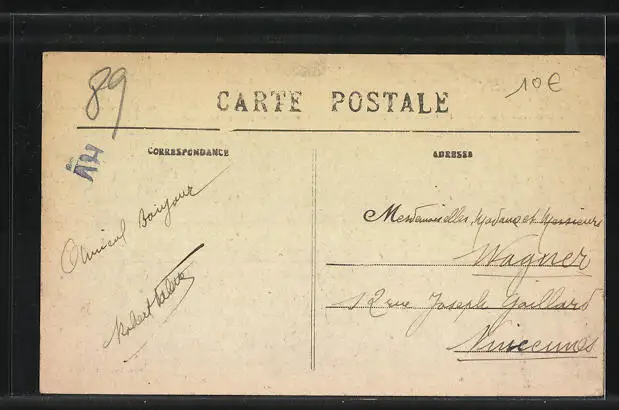 89
10€
CARTE POSTALE
CORRESPONDANCE
ADRESSE
AH
Amical Bonjour
Robert
Mesdemoiselles, Madame et Messieurs
Wagner
12 rue Joseph Gaillard
Vincennes